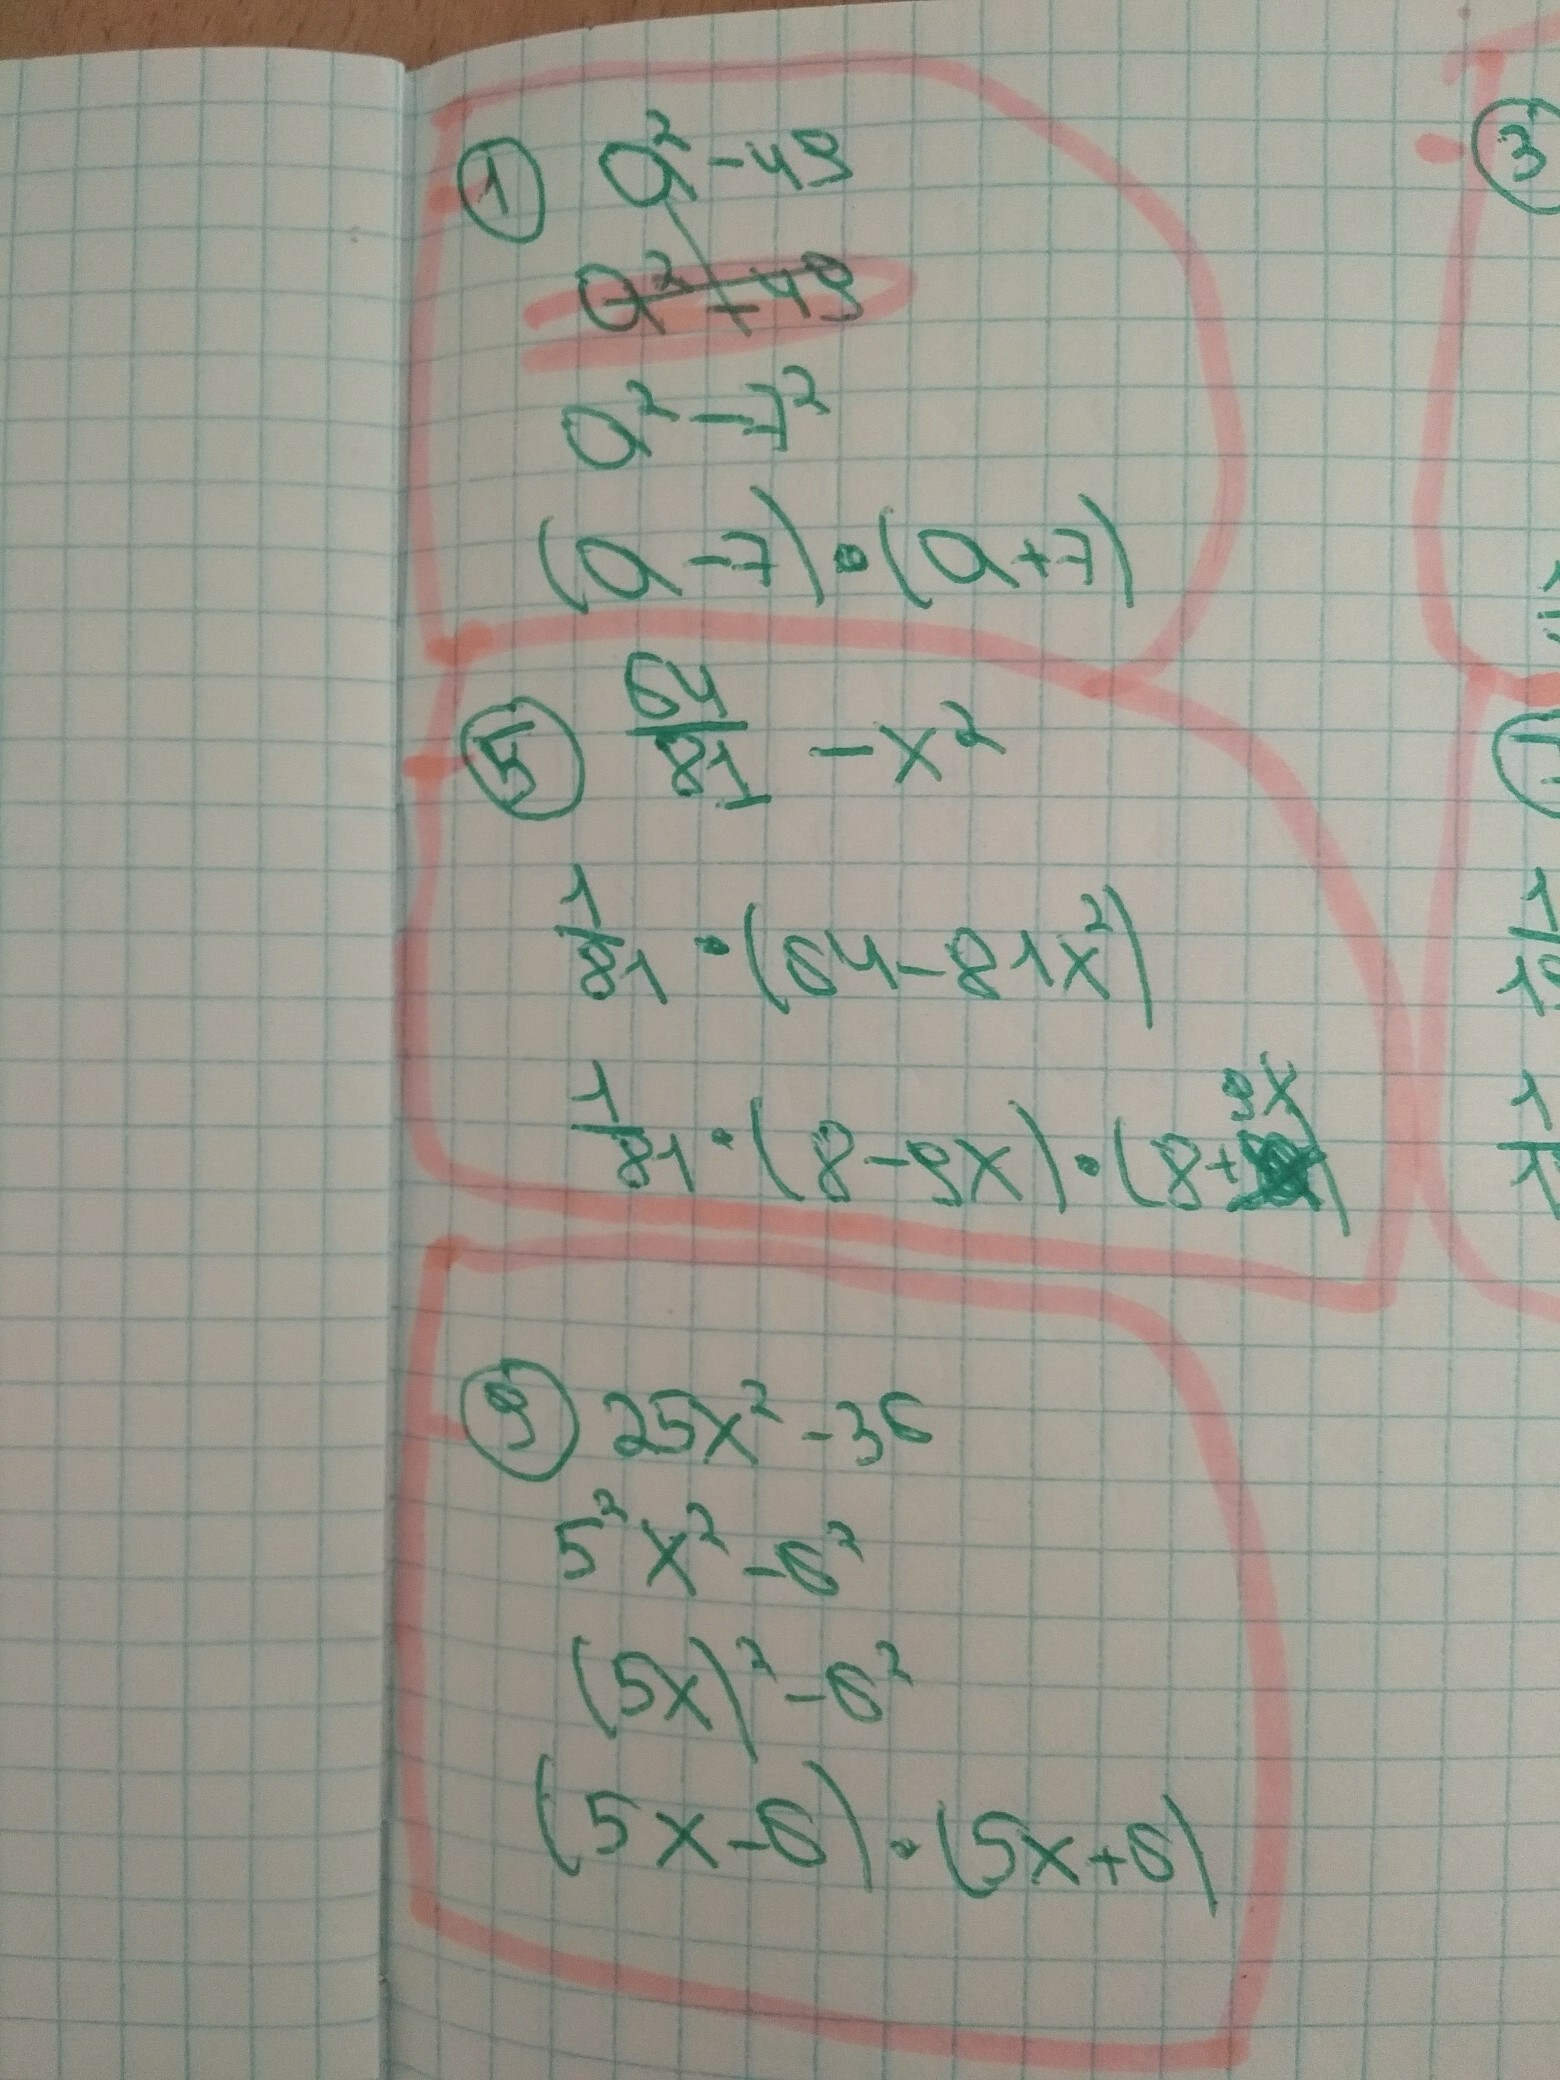 ① a² - 49
a² + 49
a² - 7²
(a - 7) • (a + 7)
⑤ 64/81 - x²
1/81 • (64 - 81x²)
1/81 • (8 - 9x) • (8 + 9x)
⑨ 25x² - 36
5²x² - 6²
(5x)² - 6²
(5x - 6) • (5x + 6)
③